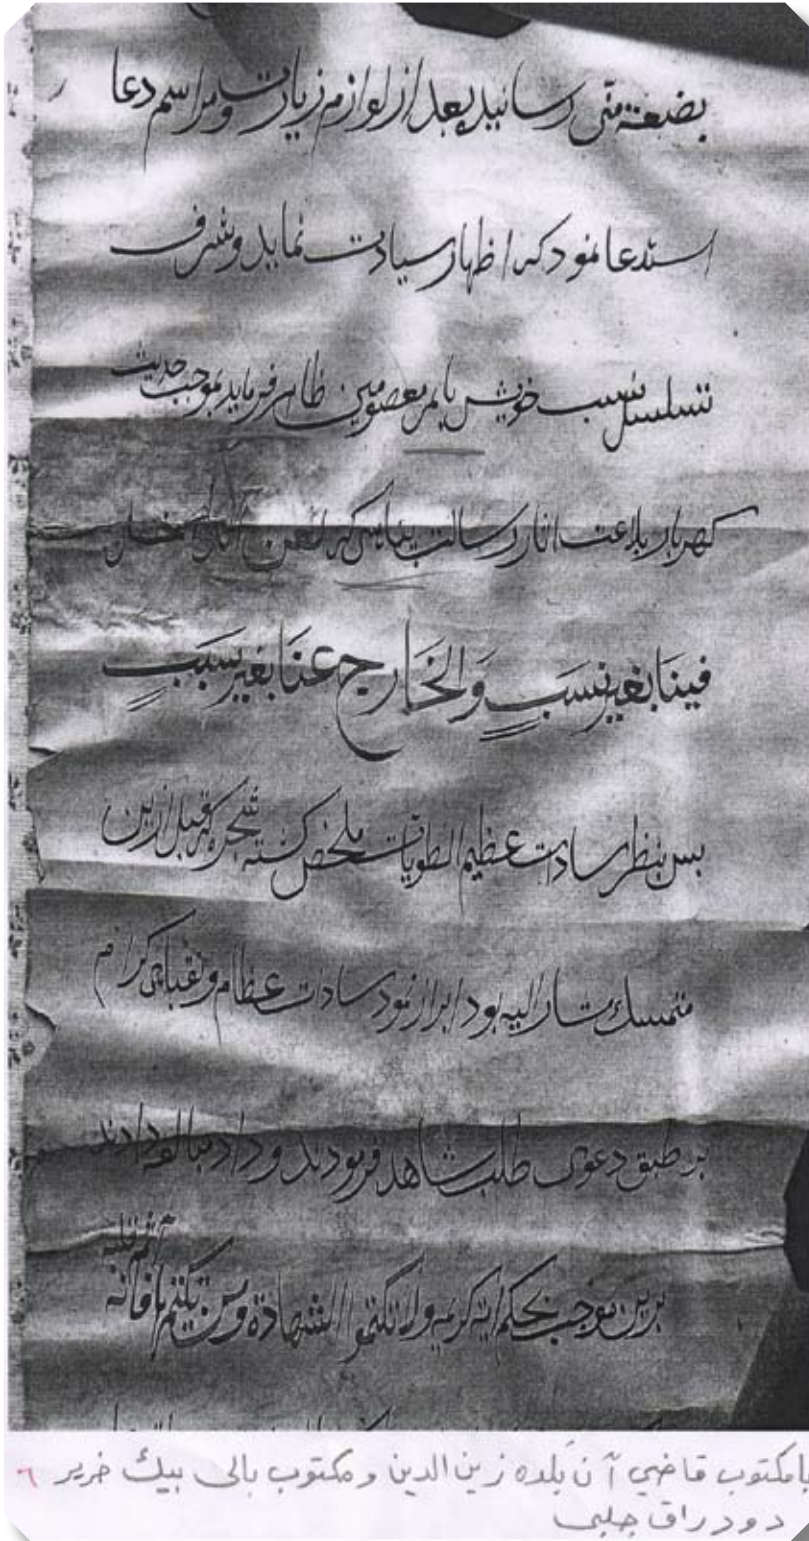 بضعة منی رسانید بعد از لوازم زیارت و مراسم دعا
استدعا نمود که اظهار سیادت نماید و شرف
تسلسل نسب خویش بایمه معصومین ظاهر فرماید بموجب حدیث
کهربار بلاغت اثار رسالت پناهی که لعن الله الداخل
فینَا بغیر نسَبٍ وَالخَارج عَنَا بغیر سَبَبٍ
بس بنظر سادات عظیم الطویات ملخص کشته شجره که قبل ازین
متمسك مشار الیه بود ابراز نمود سادات عظام و نقباء کرام
بر طبق دعوی طلب شاهد فرمودند و داد مبالغه دادند
برین موجب بحکم ایه کریمه ولا تکتموا الشهادة ومن یکتمها فانه
آثم قلبه
با مکتوب قاضي آن بلده زین الدین و مکتوب بالی بیك خریر ٦
دودراق جلبی